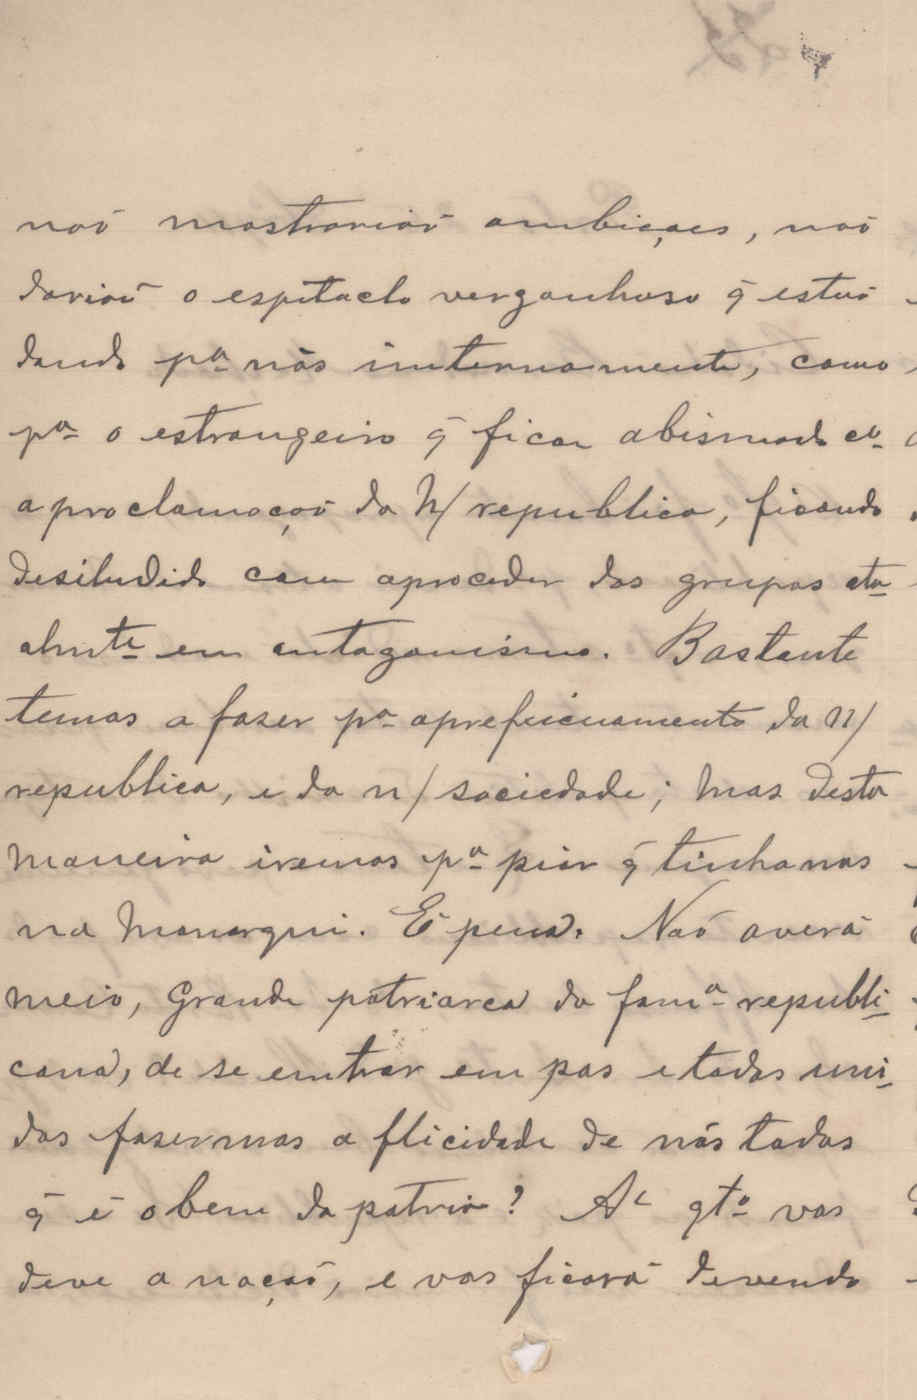 naõ mostrariaõ ambiçaes, naõ
dariaõ o espetaclo vergonhoso q̃ estaõ
dando pª nòs internamente, como
pª o estrangeiro q̃ ficou abismado cº
aproclamaçaõ da N/ republica, ficando
desiludido com aproceder dos grupos
em antagonismo. Bastante
temos a fazer pª aprefeicuamento da N/
republica, e da n/ sociedade; mas desta
maneira iremos pª pior q̃ tinhamos
na Monarqui. É pena. Naõ averá
meio, Grande patriarca da famª republi-
cana, de se entrar em pas e todos uni-
dos fasermos a flicidade de nós todos
q̃ é obem da patria? Ai qtº vos
deve a naçaõ, e vos ficará devendo